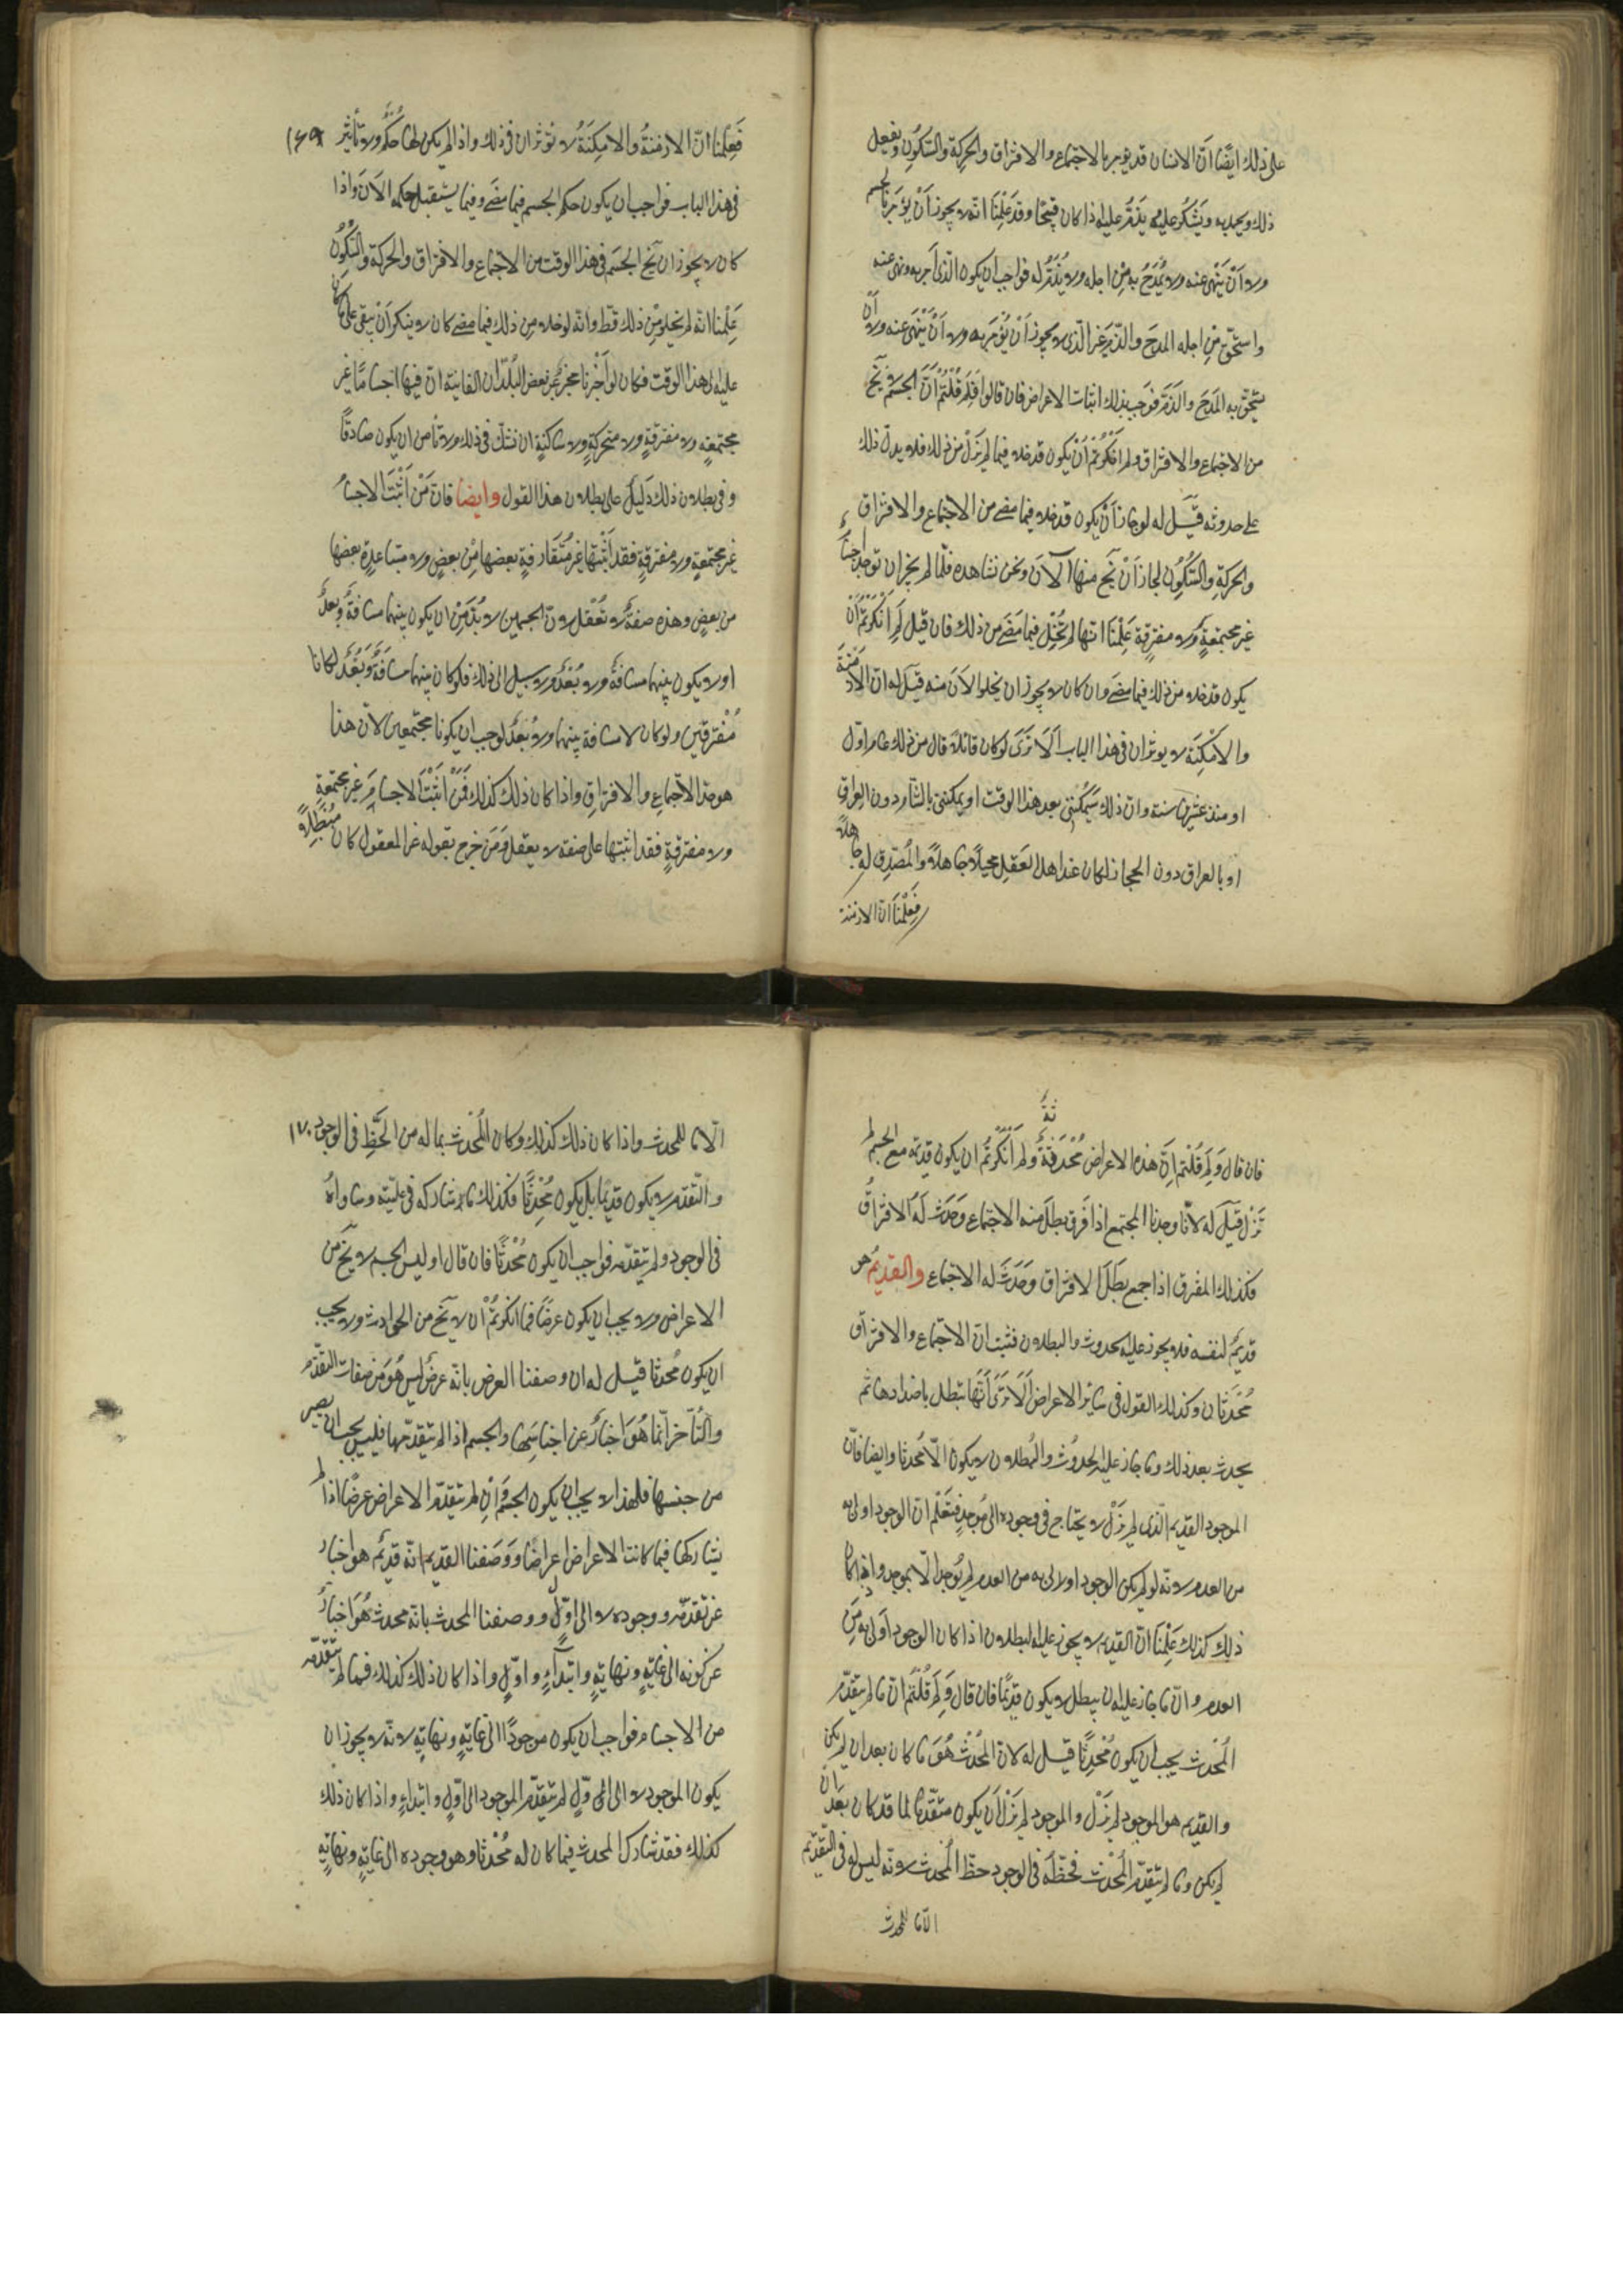 على ذلك ايضًا انّ الانسان قد يؤمر بالاجتماع والافتراق والحركة والسّكون ويفعل
ذلك ويحمد به ويشكر عليه ويذمّ عليه اذا كان قبيحًا وقد علمنا انه لا يجوز ان يؤمر بالجسم
ولا أن ينهى عنه ولا يُمدح به من اجله ولا يُذمّ له فواجب ان يكون الّذى أمر به ونهى عنه
واستحقّ من اجله المدح والذّم غير الّذى لا يجوز أن يُؤمر به ولا أن ينهى عنه ولا أن
يستحقّ به المدح والذّم فوجب بذلك اثبات الاعراض فان قالوا فلم قلتم أنّ الجسم لا يخ
من الاجتماع والافتراق ولم انكرتم أن يكون قد خلا فيما لم يزل من ذلك فلا يدلّ ذلك
على حدوثه قيل له لو جاز أن يكون قد خلا فيما مضى من الاجتماع والافتراق
والحركة والسّكون لجاز أن يخ منها الآن ونحن نشاهده فلمّا لم يجز ان توجد اجسامًا
غير مجتمعةٍ ولا مفترقة علمنا انها لم تخل فيما مضى من ذلك فان قيل لم أنكرتم أن
يكون قد خلا من ذلك فيما مضى وان كان لا يجوز ان يخلو الآن منه قيل له انّ الازمنة
والامكنة لا يوثران فى هذا الباب ألا ترى لو كان قائلا قال من ذلك عام اوّل
او منذ عشرين سنة وانّ ذلك سيمكنني بعد هذا الوقت او يمكنني بالشّام دون العراق
او بالعراق دون الحجاز لكان عند اهل العقل مخبلًا جاهلًا والمصدّق له جاهلًا
فعلمنا انّ الازمنة
فعلمنا انّ الازمنة والامكنة لا تؤثران فى ذلك واذا لم يكن لها حكمٌ ولا تأثير ١٦٩
فى هذا الباب فواجب ان يكون حكم الجسم فيما مضى وفيما يستقبل حكمه الآن واذا
كان لا يجوز ان يخ الجسم فى هذا الوقت من الاجتماع والافتراق والحركة والسّكون
علمنا انّه لم يخلو من ذلك قط وانّه لو خلا من ذلك فيما مضى كان لا ينكر أن يبقى على ما كان
عليه الى هذا الوقت فكان لو أخبرنا مخبرٌ عن بعض البلدان الغائبة انّ فيها اجسامًا غير
مجتمعةٍ ولا مفترقةٍ ولا متحركةٍ ولا ساكنةٍ ان نشكّ فى ذلك ولا نأمن ان يكون صادقًا
وفى بطلان ذلك دليل على بطلان هذا القول وايضا فانّ من أثبت الاجسام
غير مجتمعةٍ ولا مفترقةٍ فقد أثبتها غير متقاربةٍ بعضها من بعضٍ ولا متباعدةٍ بعضها
من بعضٍ وهذه صفةٌ لا تعقل لانّ الجسمين لا بُدّ من ان يكون بينهما مسافةٌ وبعدٌ
او لا يكون بينهما مسافةٌ ولا بُعدٌ ولا سبيل الى ذلك فلو كان بينهما مسافةٌ وبُعدٌ لكانا
مُفترقين ولو كان لا مسافة بينهما ولا بُعدٌ لوجب ان يكونا مجتمعين لانّ هذا
هو حدّ الاجتماع والافتراق واذا كان ذلك كذلك فمن أثبت الاجسام غير مجتمعةٍ
ولا مفترقةٍ فقد اثبتها على صفة لا يعقل ومن خرج بقوله عن المعقول كان مُبطلًا
فان قال ولم قلتم انّ هذه الاعراض مُحدثةٌ ولم أنكرتم ان يكون قديمة مع الجسم لم
تزل قيل له لانّا وجدنا المجتمع اذا فرق بطل منه الاجتماع وحدث له الافتراقُ
فكذلك المفرق اذا جمع بطل الافتراق وحدث له الاجتماع والقديم هو
قديمٌ لنفسه فلا يجوز عليه الحدوث والبطلان فثبت انّ الاجتماع والافتراق
مُحدثان وكذلك القول فى سائر الاعراض ألا ترى أنّها تبطل باضدادها ثم
يحدث بعد ذلك وما جاز عليه الحدوث والبُطلان لا يكون الّا مُحدثا وايضا فانّ
الموجود القديم الّذى لم يزل لا يحتاج فى وجوده الى مُوجدٍ فنعلم انّ الوجود اولى به
من العدم لانّه لو لم يكن الوجود اولى به من العدم لم يُوجد الّا بموجد واذا كان
ذلك كذلك علمنا انّ القديم لا يجوز عليه البطلان اذا كان الوجود أولى به من
العدم وانّ ما جاز عليه ان يبطل لا يكون قديمًا فان قال ولم قلتم انّ ما لم يتقدّم
المُحدث يجب أن يكون مُحدثًا قيل له لانّ المُحدث هو ما كان بعد ان لم يكن
والقديم هو الموجود لم يزل والموجود لم يزل أن يكون متقدّما لما قد كان بعد ان
لم يكن وما لم يتقدّم المُحدث فحظّه فى الوجود حظّ المُحدث لانّه ليس له فى التّقدّم
الّا ما للمحدث
الّا ما للمحدث واذا كان ذلك كذلك وكان المُحدث بما له من الحظّ فى الوجود ١٧٠
والتّقدّم لا يكون قديمًا بل يكون مُحدثًا فكذلك ما شاركه فى علّيته وساواهُ
فى الوجود ولم يتقدّمه فواجب ان يكون مُحدثًا فان قال اوليس الجسم لا يخ من
الاعراض ولا يجب ان يكون عرضًا فما انكرتم أن لا يخ من الحوادث ولا يجب
ان يكون مُحدثا قيل له ان وصفنا العرض بانّه عرضٌ ليس هو من صفات التّقدّم
والتّأخّر انّما هو اخبارٌ عن اجناسها والجسم اذا لم يتقدّمها فليس يجب ان يصير
من جنسها فلهذا لا يجب ان يكون الجسم وان لم يتقدّم الاعراض عرضًا اذا لم
يشاركها فيما كانت الاعراض اعراضا ووصفنا القديم بانّه قديمٌ هو اخبارٌ
عن تقدّمه ووجوده لا الى اوّلٍ ووصفنا المحدث بانّه محدث هو اخبارٌ
عن كونه الى غايةٍ ونهايةٍ وابتداءٍ واوّلٍ واذا كان ذلك كذلك فما لم يتقدّمه
من الاجسام فواجب ان يكون موجودًا الى غايةٍ ونهايةٍ لانّه لا يجوز ان
يكون الموجود لا الى اوّلٍ لم يتقدّم الموجود الى اوّلٍ وابتداءٍ واذا كان ذلك
كذلك فقد شارك المحدث فيما كان له مُحدثا وهو وجوده الى غايةٍ ونهايةٍ